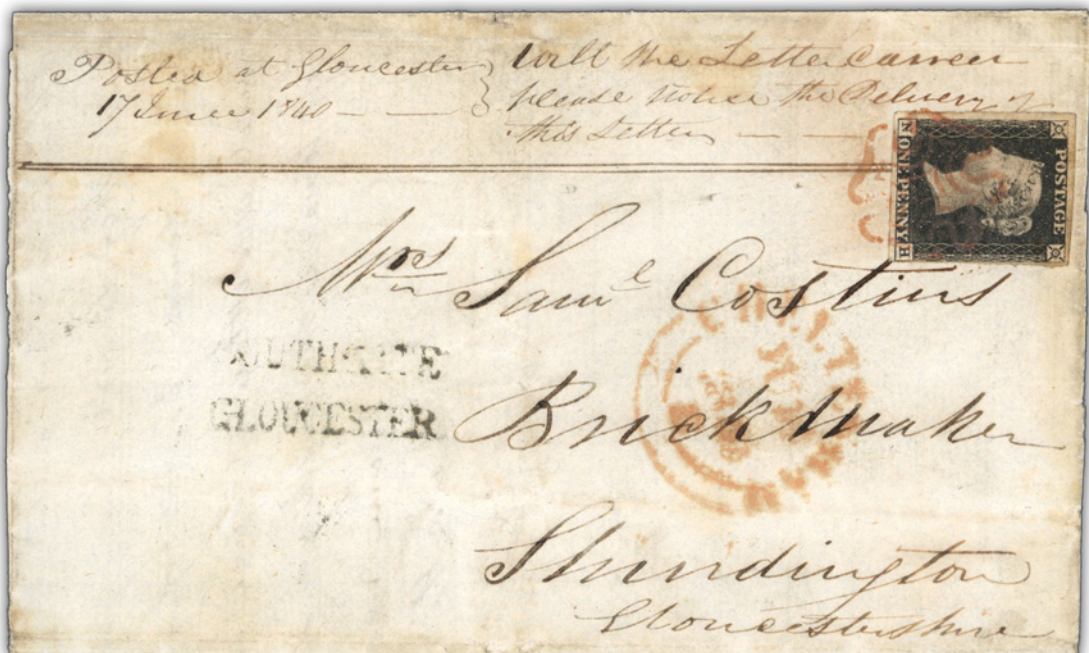 Posted at Gloucester
17 June 1840
Will the Letter Carrier
please notice the Delivery of
this Letter
POSTAGE
N ONE PENNY H
Mrs Saml Costins
SOUTHGATE
GLOUCESTER
CHELTENHAM
Brick Maker
Shurdington
Gloucestershire